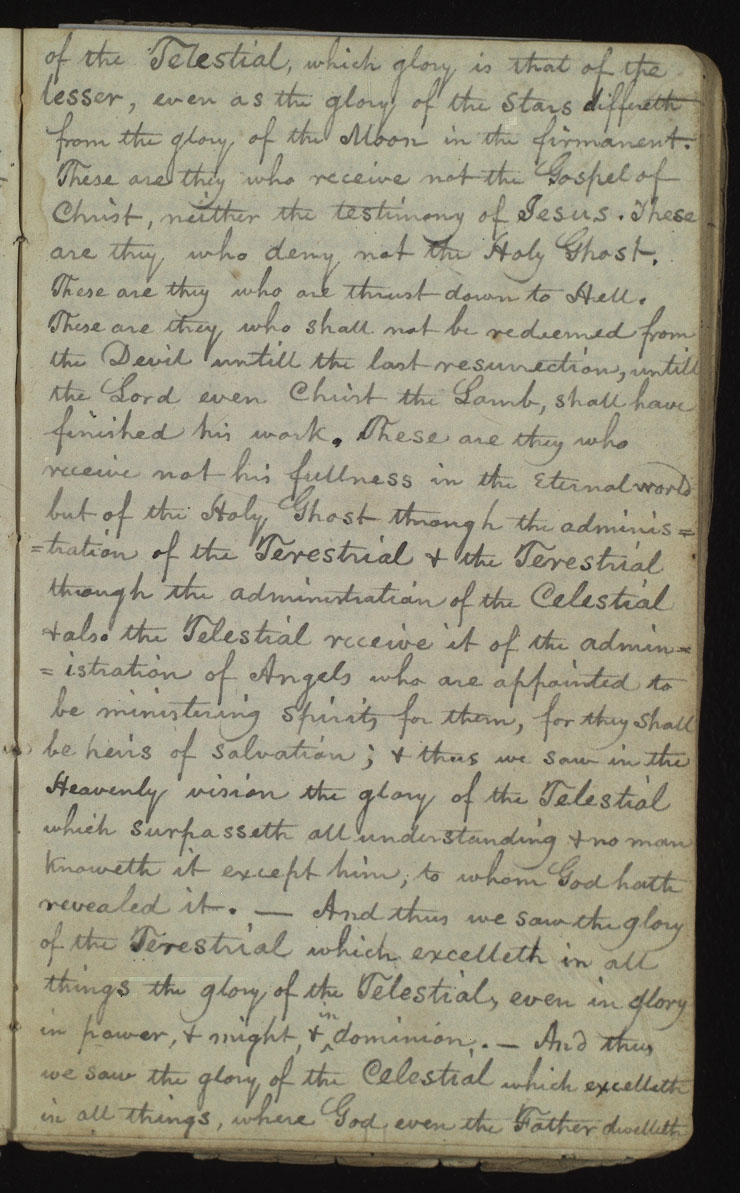 of the Telestial, which glory is that of the
lesser, even as the glory of the Stars differeth
from the glory of the Moon in the firmanent.
These are they who receive not the Gospel of
Christ, neither the testimony of Jesus. These
are they who deny not the Holy Ghost.
These are they who are thrust down to Hell.
These are they who shall not be redeemed from
the Devil untill the last resurrection, untill
the Lord even Christ the Lamb, shall have
finished his work. These are they who
receive not his fullness in the Eternal world
but of the Holy Ghost through the adminis=
=tration of the Terestrial & the Terestrial
through the administration of the Celestial
& also the Telestial receive it of the admin=
=istration of Angels who are appointed to
be ministering spirits for them, for they shall
be heirs of salvation; & thus we saw in the
Heavenly vision the glory of the Telestial
which surpasseth all understanding & no man
knoweth it except him, to whom God hath
revealed it. — And thus we saw the glory
of the Terestrial which excelleth in all
things the glory of the Telestial, even in glory
in power, & might, & in dominion. — And thus
we saw the glory of the Celestial which excelleth
in all things, where God even the Father dwelleth